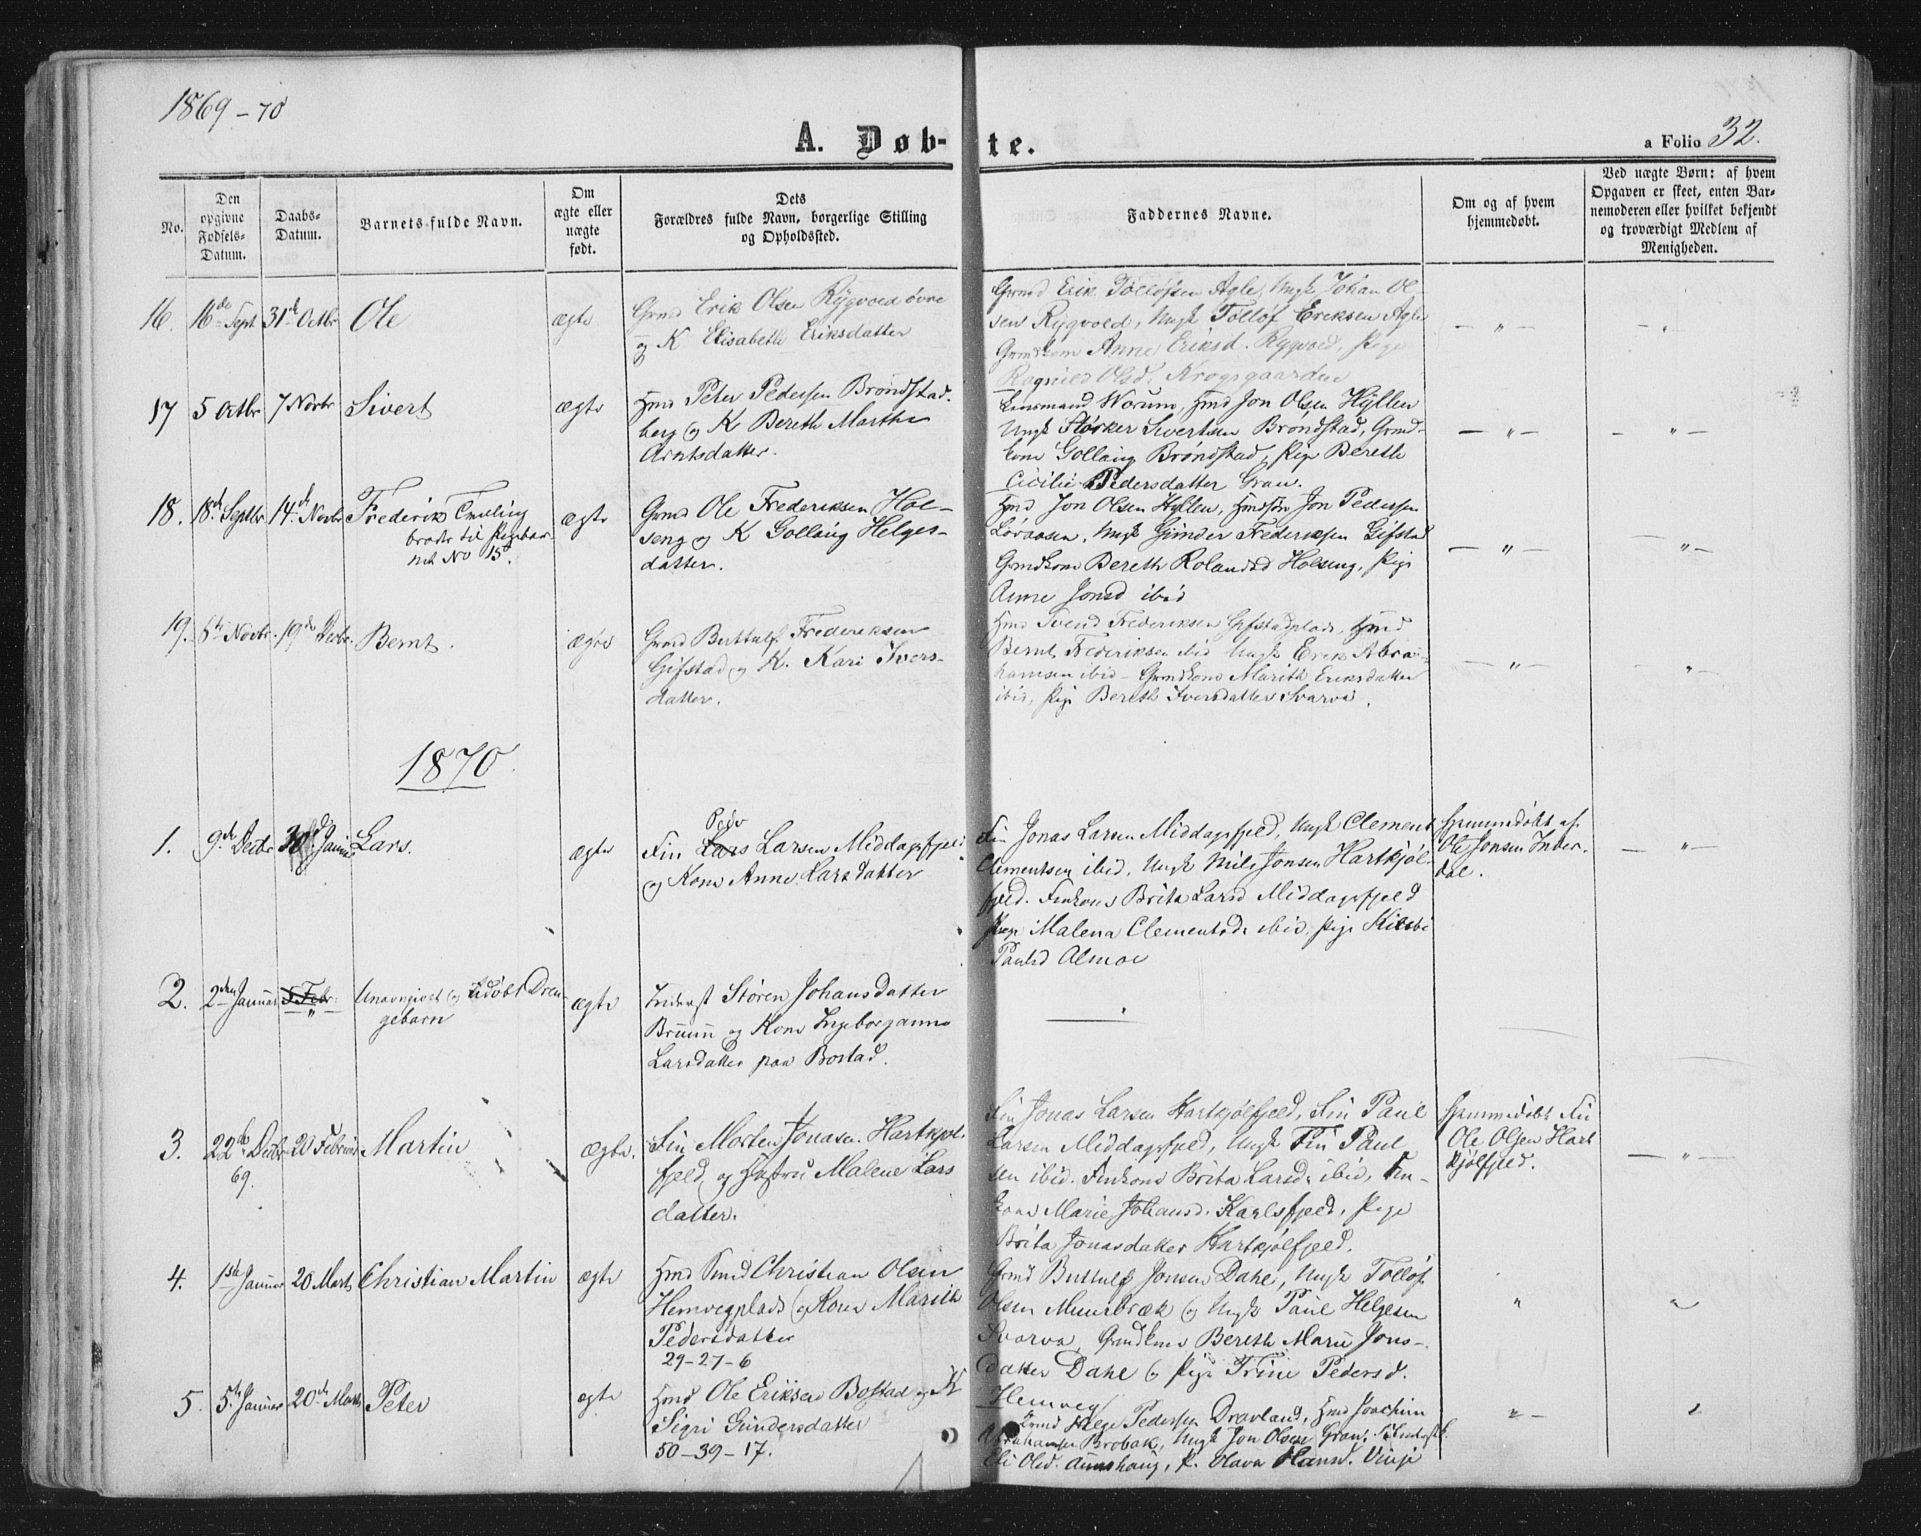 1869-70
A. Døbte.
a Folio 32.
No.
Den opgivne Fødsels-Datum.
Daabs-Datum.
Barnets fulde Navn.
Om ægte eller uægte født.
Dets Forældres fulde Navn, borgerlige Stilling og Opholdssted.
Faddernes Navne.
Om og af hvem hjemmedøbt.
Ved uægte Børn: af hvem Opgaven er skeet, enten Barnemoderen eller hvilket bekjendt og troværdigt Medlem af Menigheden.
16. 16de Sept 31de Octbr Ole ægte
Grmd Erik Olsen Rygvold øvre
og K Elisabeth Eriksdatter
Grmd Erik Tollofsen Agle, Ungk Johan Ol
sen Rygvold, Ungk Tollof Eriksen Agle
Grmdkone Anne Eriksd. Rygvold, Pige
Ragnild Olsd. Krogsgaarden
17 5 Octbr 7 Novbr Sivert ægte
Hmd Peter Pedersen Brøndstad
berg og K Bereth Marthe
Arntsdatter.
Lensmand Worum, Hmd Jon Olsen Hyllen
Ungk Størker Sivertsen Brøndstad, Grmd
kone Gollaug Brøndstad, Pige Bereth
Cicilie Pedersdatter Gran.
18. 18de Septbr 14de Novbr Frederik Tvilling
broder til Pigebar
net No 15. ægte
Grmd Ole Frederiksen Hol-
seng og K Gollaug Helges-
datter.
Hmd Jon Olsen Hyllen, Jon Pedersen
Ungk Gunder Frederiksen Gifstad
Grmdkone Bereth Rolandsd Holseng, Pige
Anne Jonsd ibid
19. 6te Novbr. 19de Decbr. Bernt. ægte
Grmd Buttulf Frederiksen
Gifstad og K. Kari Ivers-
datter.
Hmd Svend Frederiksen Gifstadplads, Hmd
Bernt Frederiksen ibid Ungk Erik Abra-
hamsen ibid - Grmdkone Marith Eriksdatter
ibid, Pige Bereth Iversdatter Svarva.
1870
1. 9de Decbr 30d Januar Lars. ægte
Peder
Fin Lars Larsen Middagsfjeld
og Kone Anne Larsdatter
Fin Jonas Larsen Middagsfjeld, Ungk Clement
Clementsen ibid, Ungk Nils Jonsen Hartkjøl-
fjeld. Finkone Brita Larsd Middagsfjeld
Pige Malena Clementsd. ibid, Pige
Paulsd Almoe
Hjemmedøbt af
Ole Jonsen Inder-
dal.
2. 2den Januar 5 Febr. Unavngivet og udøbt Dren-
gebarn ægte
Inderst Støren Johansdatter
Bruun og Kone Ingeborganna
Larsdatter paa Bostad.
3. 22de Decbr
69. 20 Februar Martin ægte.
Fin Morten Jonasen Hartkjøl
fjeld og Hustru Malene Lars
datter.
Fin Jonas Larsen Hartkjølfjeld, Fin Paul
Larsen Middagsfjeld, Ungk Fin Paul
sen ibid. Finkone Brita Larsd. ibid, Fin-
kone Marie Johansd. Karlsfjeld, Pige
Brita Jonasdatter Hartkjølfjeld.
Hjemmedøbt
Ole Olsen Hart
kjølfjeld.
4. 1ste Januar 20 Marts Christian Martin ægte
Hmd Smed Christian Olsen
Hemvegplads og Kone Marith
Pedersdatter
29-27-6
Grmd Buttulf Jonsen Dahl, Ungk Tollof
Olsen Muurbræk og Ungk Paul Helgesen
Svarva, Grmdkone Bereth Marie Jons-
datter Dahl og Pige Trine Pedersd.
Hemveg
5. 5te Januar 20de Marts Peter ægte
Hmd Ole Eriksen Bostad og K
Sigri Gundersdatter
50-39-17.
Grmd Helge Pedersen Dravland, Hmd Joachim
Abrahamsen Brobak, Ungk Jon Olsen Gran,
Eli Olsd. Aunshaug, P. Olava Hansd. Vinje